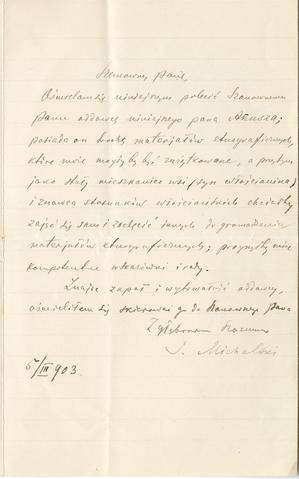 Szanowny Panie,
Ośmielam się niniejszym polecić Szanownemu
Panu oddawcę niniejszego pana
posiada on trochę materjałów etnograficznych,
które może mogłyby być zużytkowane, a przytem
jako stały mieszkaniec wsi (syn włościanina)
i znawca stosunków włościańskich chciałby
zająć się sam i zachęcić innych do gromadzenia
materjałów etnograficznych; przydałyby mu
kompetentne wskazówki i rady.
Znając zapał i wytrwałość oddawcy,
ośmieliłem się skierować go do Szanownego Pana
Z głębokim
J. Michalski
5/III 903.